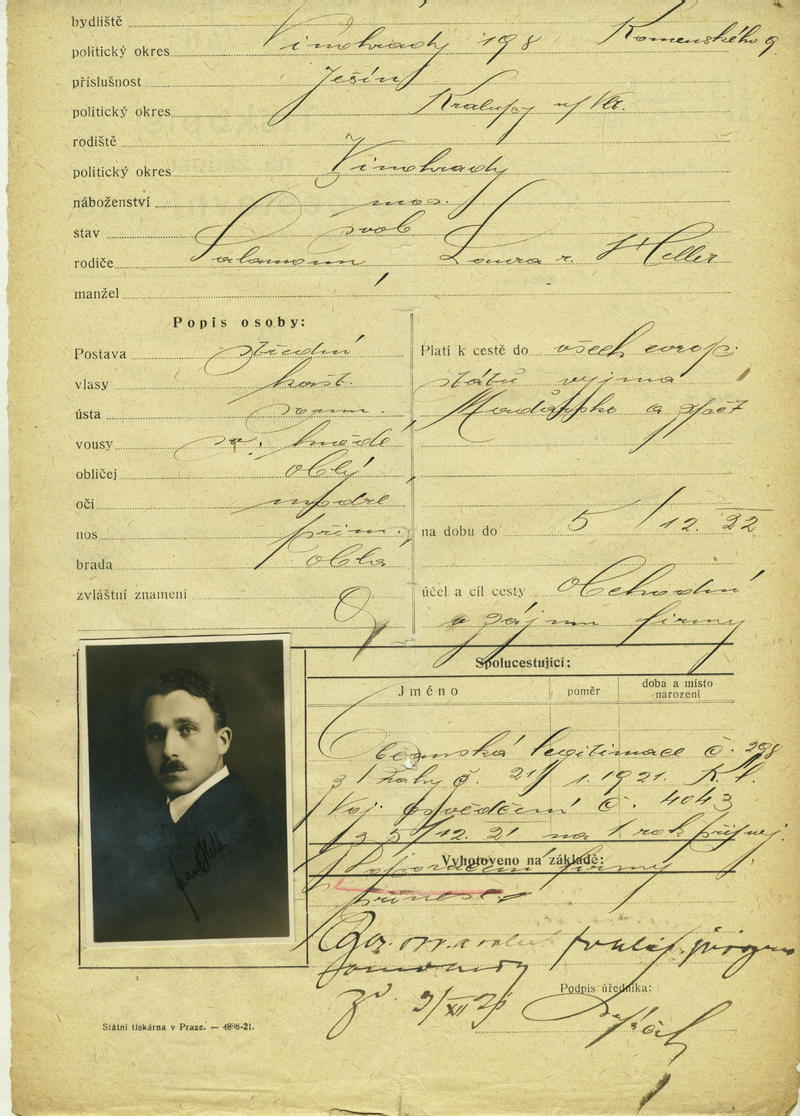 bydliště
politický okres Vinohrady 198 Komenského 9
příslušnost Ješín
politický okres Kralupy n/Vlt.
rodiště
politický okres Vinohrady
náboženství mos.
stav svob
rodiče Salamoun Loura r. Heller
manžel
Popis osoby:
Postava střední
vlasy kašt.
ústa soum.
vousy sv. hnědé
obličej oblý
oči modré
nos přím.
brada oblá
zvláštní znamení
Platí k cestě do všech evrop.
států vyjma
Maďarsko a zpět
na dobu do 5/12. 22
účel a cíl cesty Obchodní
v zájmu firmy
Spolucestující:
Jméno poměr doba a místo narození
Občanská legitimace č. 298
z Prahy č. 21/1. 1921.
Voj. osvědčení č. 4043
z 5/12. 21 na 1 rok
Vyhotoveno na základě:
firmy
Podpis úředníka:
Státní tiskárna v Praze. — 4898-21.